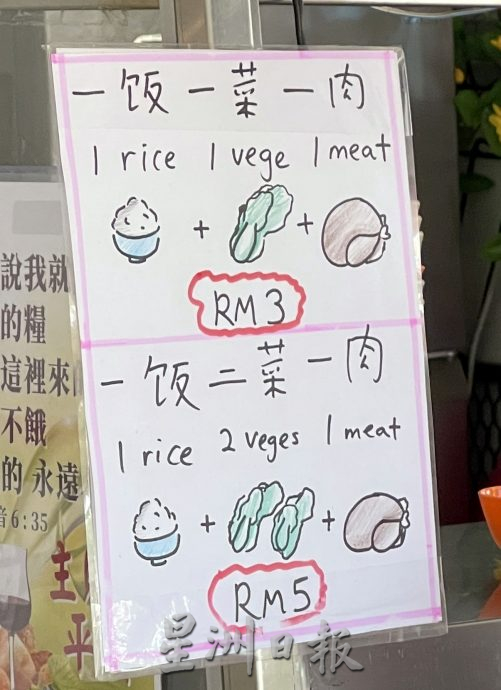 一饭一菜一肉
1 rice 1 vege 1 meat
+ +
RM3
一饭二菜一肉
1 rice 2 veges 1 meat
+ +
RM5
說我就
的糧
這裡來
不餓
的 永遠
6:35
主
平
星洲日報